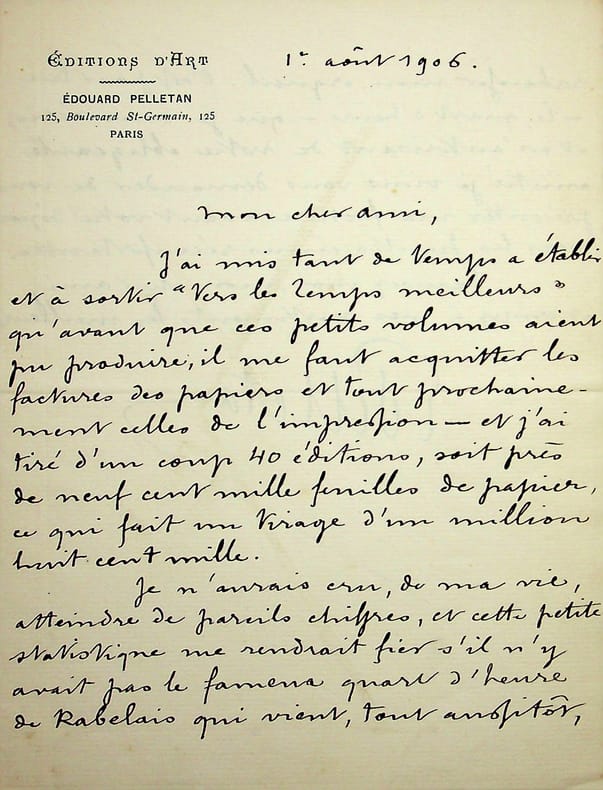 ÉDITIONS D'ART
1r août 1906.
ÉDOUARD PELLETAN
125, Boulevard St-Germain, 125
PARIS
Mon cher ami,
J'ai mis tant de temps a établir
et à sortir "Vers les Temps meilleurs"
qu'avant que ces petits volumes aient
pu produire, il me faut acquitter les
factures des papiers et tout prochaine-
ment celles de l'impression — et j'ai
tiré d'un coup 40 éditions, soit près
de neuf cent mille feuilles de papier,
ce qui fait un tirage d'un million
huit cent mille.
Je n'aurais cru, de ma vie,
atteindre de pareils chiffres, et cette petite
statistique me rendrait fier s'il n'y
avait pas le fameux quart d'heure
de Rabelais qui vient, tout aussitôt,